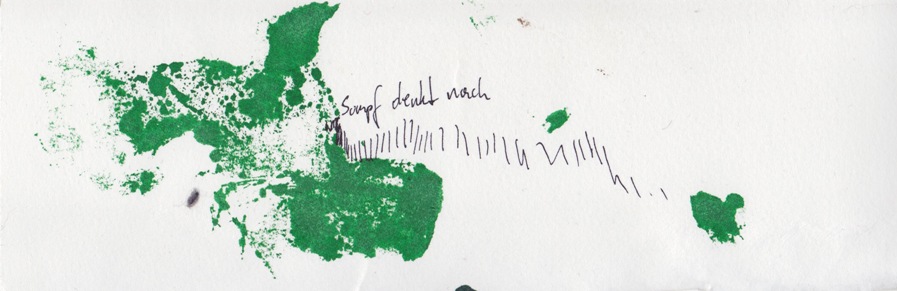 Sumpf denkt nach